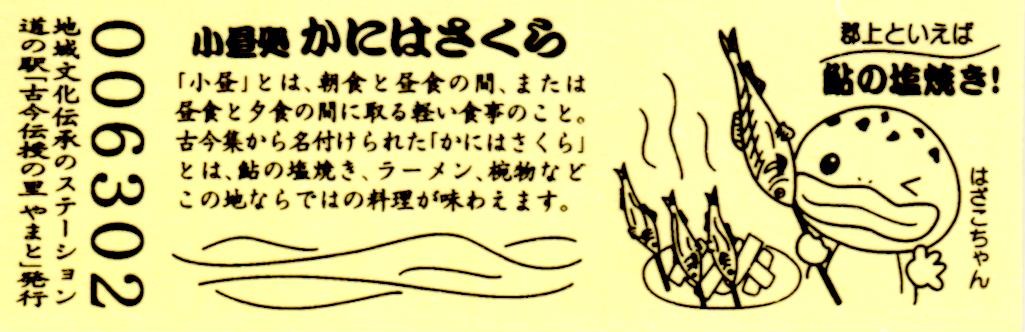 小昼処 かにはさくら
「小昼」とは、朝食と昼食の間、または
昼食と夕食の間に取る軽い食事のこと。
古今集から名付けられた「かにはさくら」
とは、鮎の塩焼き、ラーメン、椀物など
この地ならではの料理が味わえます。
郡上といえば
鮎の塩焼き!
はざこちゃん
006302
地域文化伝承のステーション
道の駅「古今伝授の里 やまと」発行